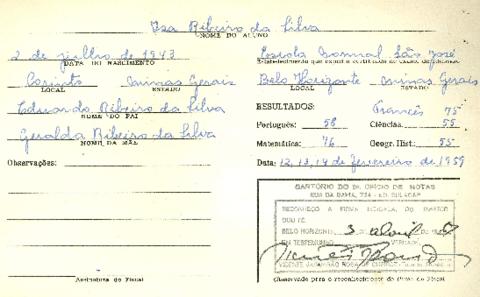 Isa Ribeiro da Silva
NOME DO ALUNO
2 de julho de 1943
DATA DO NASCIMENTO
Corinto Minas Gerais
LOCAL ESTADO
Eduardo Ribeiro da Silva
NOME DO PAI
Geralda Ribeiro da Silva
NOME DA MÃE
Observações:
Assinatura do Fiscal
Escola Normal São José
Estabelecimento que expediu o certificado de
Belo Horizonte Minas Gerais
LOCAL ESTADO
RESULTADOS: Francês 75
Português: 58 Ciências: 55
Matemática: 76 Geogr. Hist.: 55
Data: 12, 13, 14 de fevereiro de 1959
CARTÓRIO DO OFÍCIO DE NOTAS
RUA DA BAHIA,
RECONHEÇO A FIRMA
DOU FÉ.
BELO HORIZONTE, 3 abril
EM TESTEMUNHO DA VERDADE.
Observado para o reconhecimento da firma do Fiscal